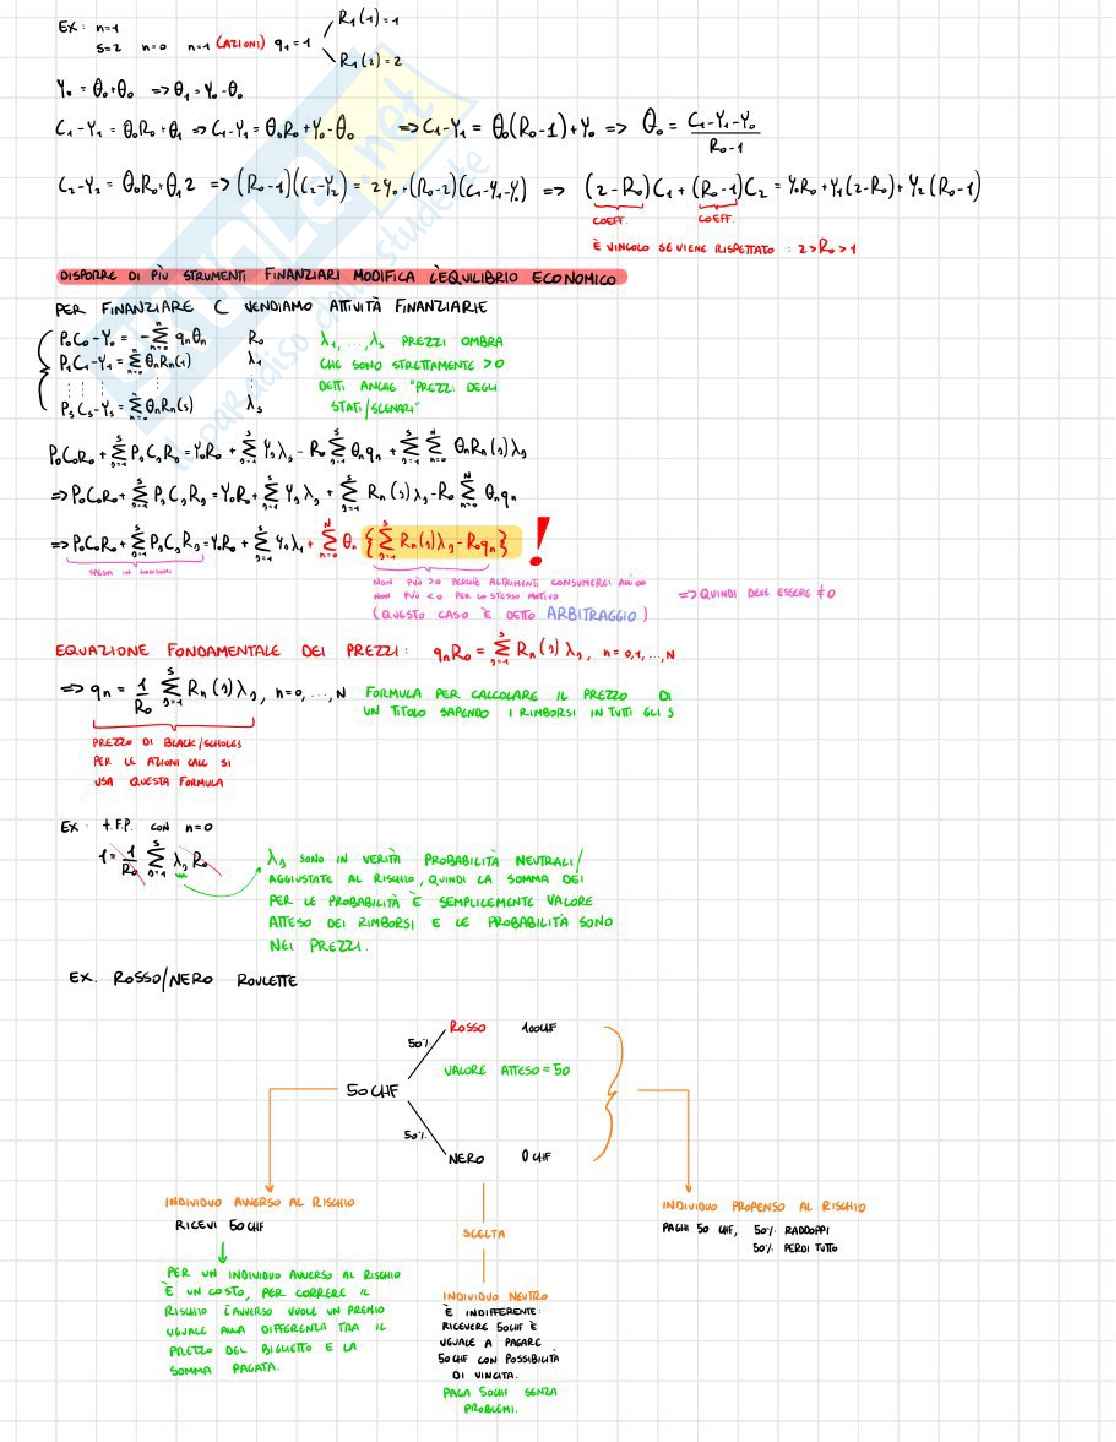 EX: n=1
S=2 n=0 n=1 (AZIONI) q₁=1
R₁(1)=1
R₁(2)=2
Y₀ = θ₀+θ₀ => θ₁=Y₀-θ₀
C₁-Y₁ = θ₀R₀+θ₁ => C₁-Y₁=θ₀R₀+Y₀-θ₀ => C₁-Y₁ = θ₀(R₀-1)+Y₀ => θ₀ = (C₁-Y₁-Y₀)/(R₀-1)
C₂-Y₂ = θ₀R₀+θ₁2 => (R₀-1)(C₂-Y₂) = 2Y₀+(R₀-2)(C₁-Y₁-Y₀) => (2-R₀)C₁+(R₀-1)C₂ = Y₀R₀+Y₁(2-R₀)+Y₂(R₀-1)
COEFF. COEFF.
È VINCOLO SE VIENE RISPETTATO: 2>R₀>1
DISPORRE DI PIÙ STRUMENTI FINANZIARI MODIFICA L'EQUILIBRIO ECONOMICO
PER FINANZIARE C VENDIAMO ATTIVITÀ FINANZIARIE
P₀C₀-Y₀ = -∑ qₙθₙ R₀
P₁C₁-Y₁ = ∑ θₙRₙ(1) λ₁
PₛCₛ-Yₛ = ∑ θₙRₙ(s) λₛ
λ₁,...,λₛ PREZZI OMBRA
CHE SONO STRETTAMENTE >0
DETTI ANCHE "PREZZI DEGLI
STATI/SCENARI"
P₀C₀R₀ + ∑ PₛCₛRₛ = Y₀R₀ + ∑ Yₛλₛ - R₀ ∑ θₙqₙ + ∑ ∑ θₙRₙ(s)λₛ
=> P₀C₀R₀ + ∑ PₛCₛRₛ = Y₀R₀ + ∑ Yₛλₛ + ∑ Rₙ(s)λₛ - R₀ ∑ θₙqₙ
=> P₀C₀R₀ + ∑ PₛCₛRₛ = Y₀R₀ + ∑ Yₛλₛ + ∑ θₙ {∑ Rₙ(s)λₛ - R₀qₙ} !
SPESA IN CONSUMI
NON PUÒ >0 PERCHÈ ALTRIMENTI CONSUMEREI AD ∞
NON PUÒ <0 PER LO STESSO MOTIVO
(QUESTO CASO È DETTO ARBITRAGGIO)
=> QUINDI DEVE ESSERE ≠0
EQUAZIONE FONDAMENTALE DEI PREZZI: qₙR₀ = ∑ Rₙ(s)λₛ, n=0,1,...,N
=> qₙ = 1/R₀ ∑ Rₙ(s)λₛ, n=0,...,N
FORMULA PER CALCOLARE IL PREZZO DI
UN TITOLO SAPENDO I RIMBORSI IN TUTTI GLI S
PREZZO DI BLACK/SCHOLES
PER LE AZIONI CALC SI
USA QUESTA FORMULA
EX: t.F.P. CON n=0
1 = 1/R₀ ∑ λₛ R₀
λₛ SONO IN VERITÀ PROBABILITÀ NEUTRALI/
AGGIUSTATE AL RISCHIO, QUINDI LA SOMMA DEI
PER LE PROBABILITÀ È SEMPLICEMENTE VALORE
ATTESO DEI RIMBORSI E LE PROBABILITÀ SONO
NEI PREZZI.
EX. ROSSO/NERO ROULETTE
ROSSO 100CHF
50%
VALORE ATTESO=50
50CHF
50%
NERO 0CHF
INDIVIDUO AVVERSO AL RISCHIO
RICEVI 50CHF
PER UN INDIVIDUO AVVERSO AL RISCHIO
È UN COSTO, PER CORRERE IL
RISCHIO L'AVVERSO VUOLE UN PREMIO
UGUALE ALLA DIFFERENZA TRA IL
PREZZO DEL BIGLIETTO E LA
SOMMA PAGATA.
SCELTA
INDIVIDUO NEUTRO
È INDIFFERENTE
RICEVERE 50CHF È
UGUALE A PAGARE
50CHF CON POSSIBILITÀ
DI VINCITA.
PAGA 50CHF SENZA
PROBLEMI.
INDIVIDUO PROPENSO AL RISCHIO
PAGHI 50 CHF, 50% RADDOPPI
50% PERDI TUTTO